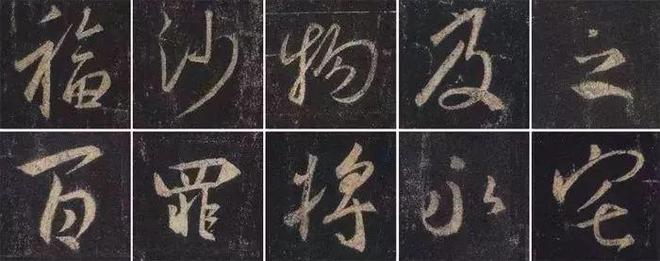 福沙物及之
百罪将永宅